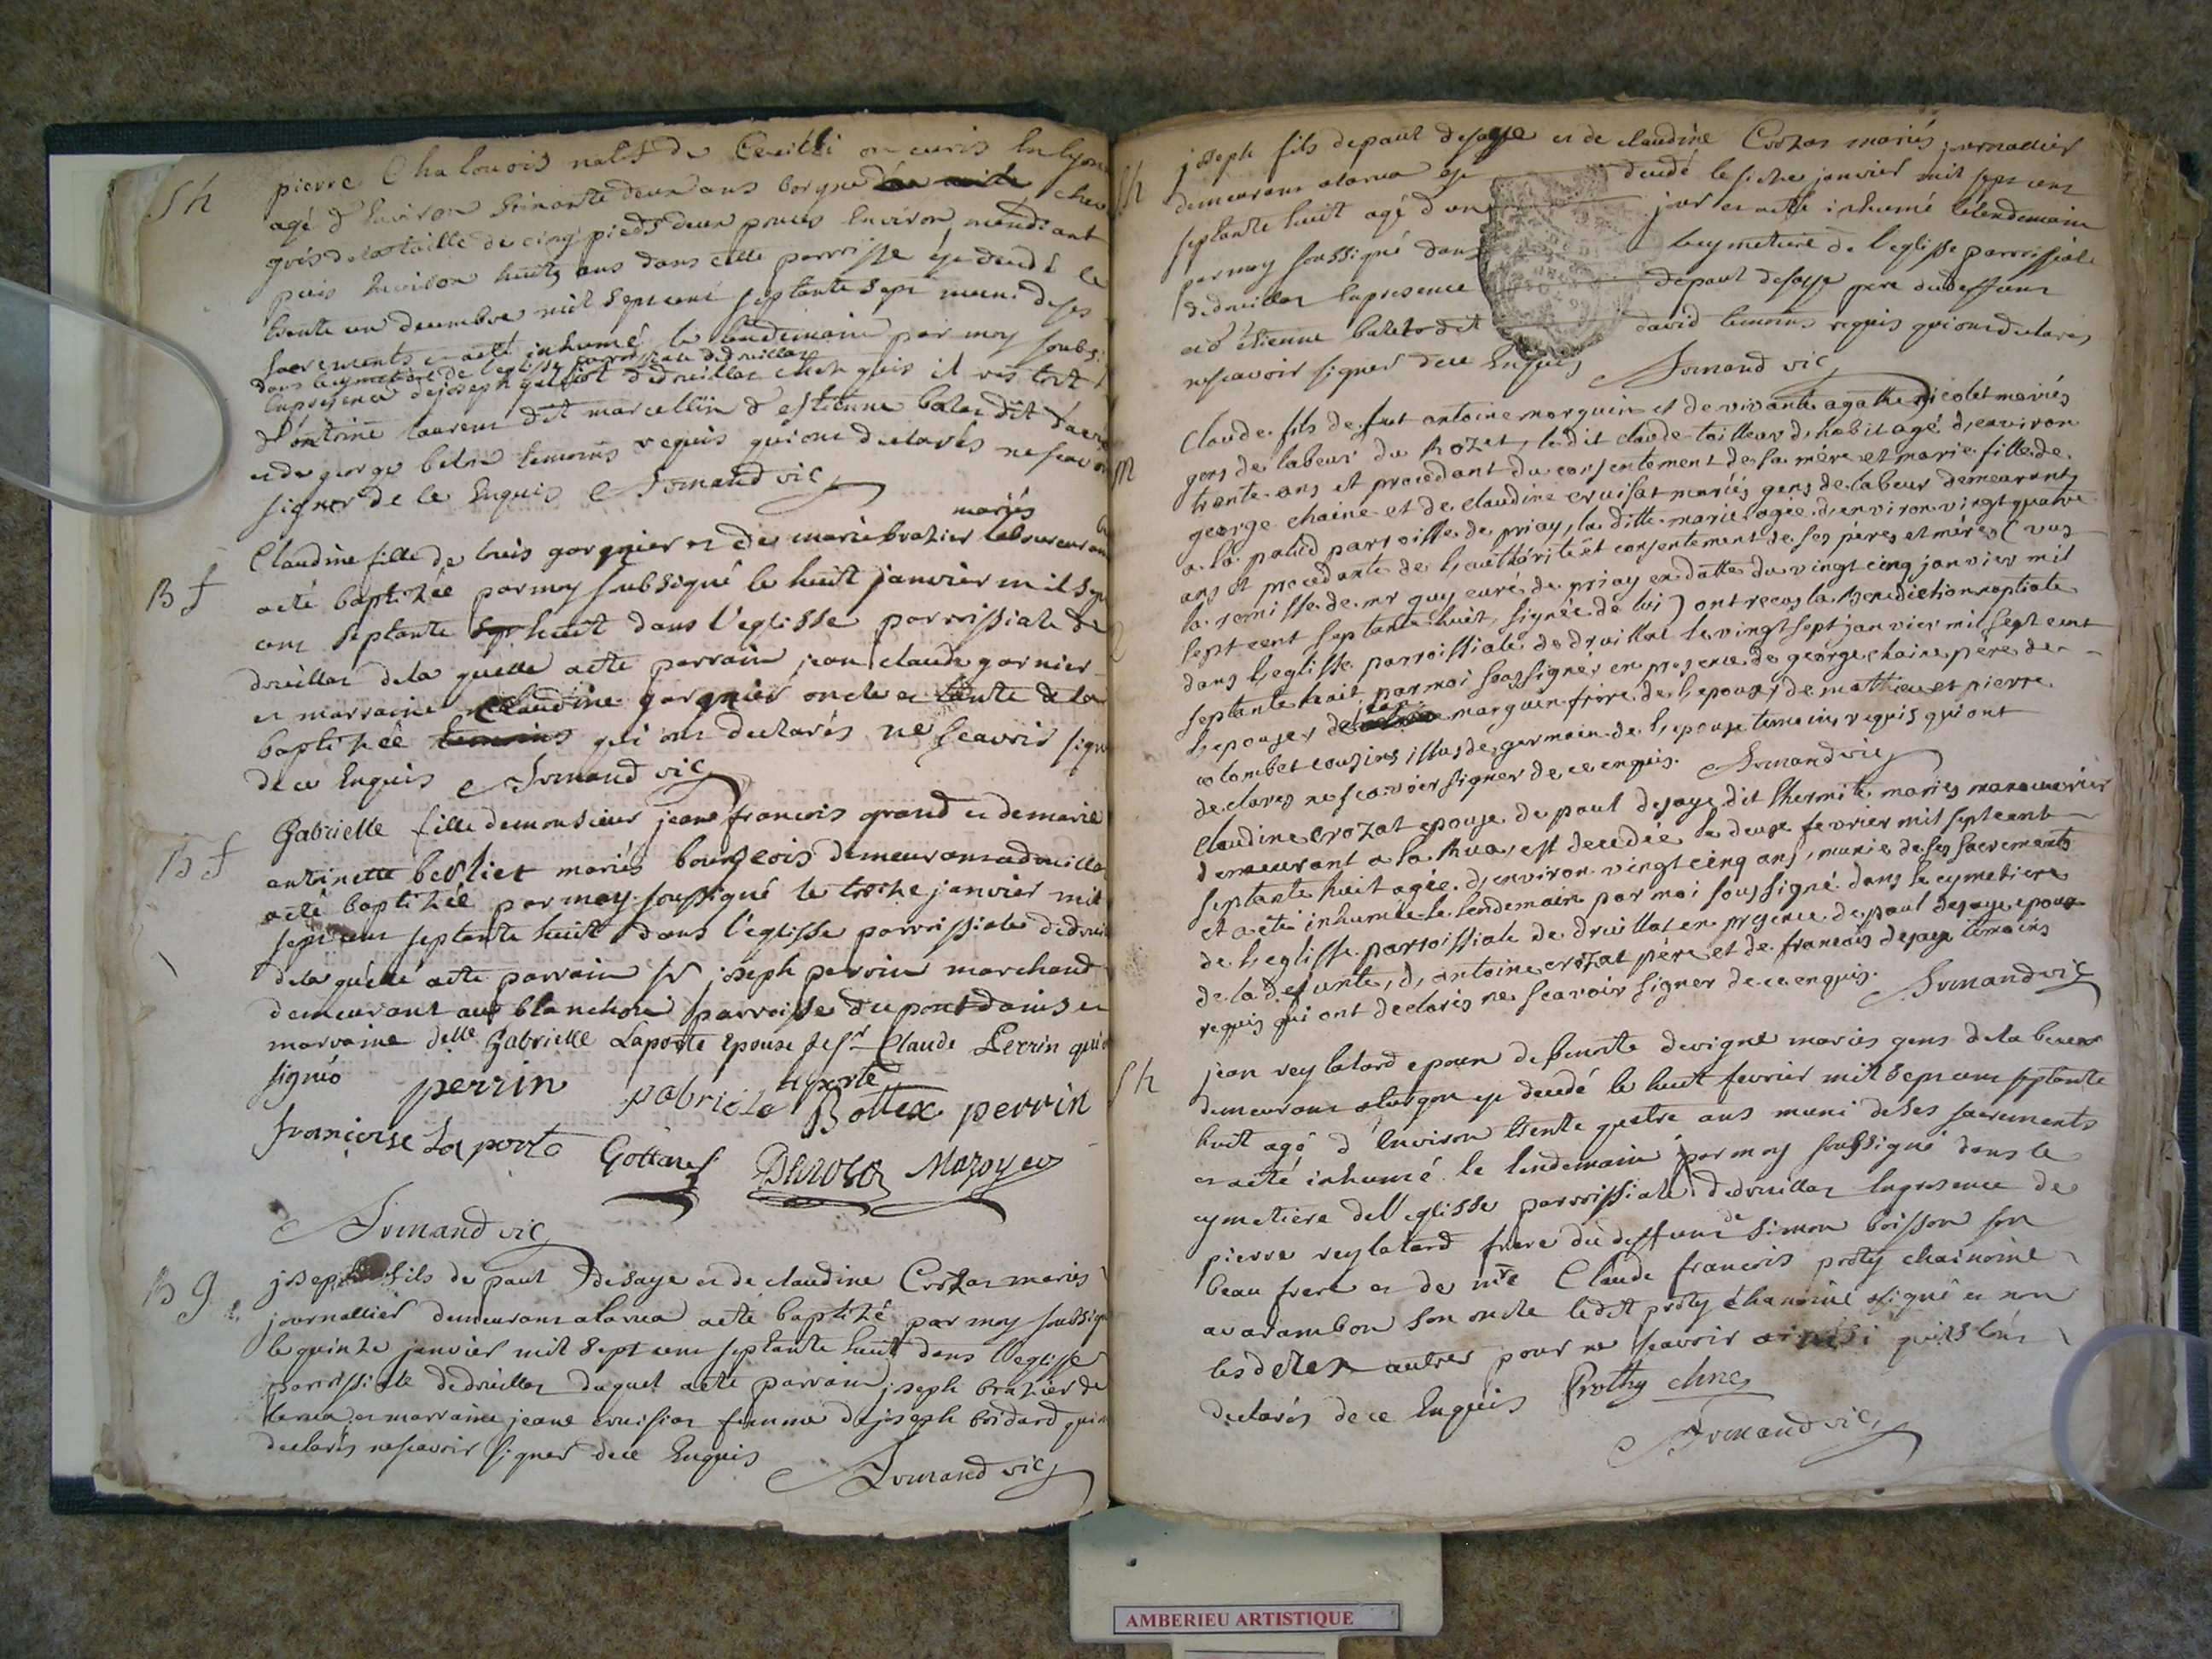 Sh
pierre Chalonois natif de on curis en lyon
agé d'environ soixante deux ans borgne chev
gris de la taille de cinq pieds deux pouces environ mendiant
puis environ huit ans dans cette parroisse est decedé le
trente un decembre mil sept cent septante sept muni de ses
sacrements et a eté inhumé le lendemain par moy soubsi
dans le cymetiere de l'eglise parroissiale de druillat
en presence de joseph druillat
d'antoine laurent dit marcellin d'estienne balet dit
et de george temoins requis qui ont declarés ne scavoir
signer de ce enquis Armand vic
B f
mariés
Claudine fille de louis gorgnier et de marie brazier laboureur
a eté baptizée par moy subsigné le huit janvier mil sept
cent septante huit dans l'eglisse parroissiale de
druillat de laquelle a eté parrain jean claude garnier
et marraine Claudine gargnier oncle et tante de la
baptizée temoins qui ont declarés ne scavoir signe
de ce enquis Armand vic
B f
Gabrielle fille de monsieur jean francois grand et de marie
antoinette berliet mariés bourgeois demeurants a druillat
a eté baptizée par moy soussigné le treize janvier mil
sept cent septante huit dans l'eglisse parroissiale de druil
de laquelle a eté parrain sr joseph perrin marchand
demeurant aux blanchon parroisse du pont dains et
marraine delle Gabrielle Laporte epouse de sr Claude Perrin qui
signé
perrin gabriele laporte Bottex perrin
francoise La porte Gottard Mazoyer
Armand vic
B g
joseph fils de paul desaye et de claudine Crozat mariés
journallier demeurans a la rua a eté baptizé par moy soussigné
le quinze janvier mil sept cent septante huit dans l'eglisse
parroissialle de druillat duquel a eté parrain joseph brazier de
larua et marraine jeane cruisiat femme de joseph boidard qui
declarés ne scavoir signer de ce enquis
Armand vic
Sh
joseph fils de paul desaye et de claudine Crozat mariés journallier
demeurans a larua est decedé le seize janvier mil sept cent
septante huit agé d'un jour et a eté inhumé le lendemain
par moy soussigné dans le cymetiere de l'eglisse parroissiale
de druillat en presence de paul desaye pere du deffunt
et d'etienne balet dit david temoins requis qui ont declarés
ne scavoir signer de ce enquis Armand vic
m
Claude fils de feut antoine morguin et de vivante agathe nicolet mariés
gens de labeur du Rozet, le dit claude tailleur d'habit agé d'environ
trente ans et procedant du consentement de sa mére et marie fille de
george chaine et de claudine cruisat mariés gens de labeur demeurants
a la palud parroisse de priay, la ditte marie agée d'environ vingt quatre
ans et procedante de l'authórité et consentement de ses péres et méres (vus
la remisse de mr guy curé de priay en datte du vingt cinq janvier mil
sept cent septante huit, signée de lui) ont recus la benediction nuptiale
dans l'eglisse parroissiale de druillat le vingt sept janvier mil sept cent
septante huit par moi soussigné, en presence de george chaine pére de
l'epouse, de marguin frére de l'epoux, de mathieu et pierre
colombet cousins issus de germain de l'epouse temoins requis qui ont
declarés ne scavoir signer de ce enquis. Armand vic
Claudine crozat epouse de paul desaye dit lhermite mariés manouvrier
demeurant a la Rua, est decedée le deux fevrier mil sept cent
septante huit agée d'environ vingt cinq ans, munie de ses sacrements
et a eté inhumée le lendemain par moi soussigné dans le cymetiere
de l'eglisse parroissiale de druillat en presence de paul desaye epoux
de la defunte, d'antoine crozat pére et de francois desaye temoins
requis qui ont declarés ne scavoir signer de ce enquis. Armand vic
Sh
jean reylatard epoux de benoite devigne mariés gens de labeur
demeurans a turgon est decedé le huit fevrier mil sept cent septante
huit agé d'environ trente quatre ans muni de ses sacrements
et a eté inhumé le lendemain par moy soussigné dans le
cymetiere de l'eglisse parroissiale de druillat en presence de
pierre reylatard frere du deffunt de simon boisson son
beau frere et de mre Claude francois proty chainoine
a varambon son oncle ledit proty chanoine signé et non
les dites autres pour ne scavoir ainsi qu'ils l'ont
declarés de ce enquis Prothy chne
Armand vic
AMBERIEU ARTISTIQUE